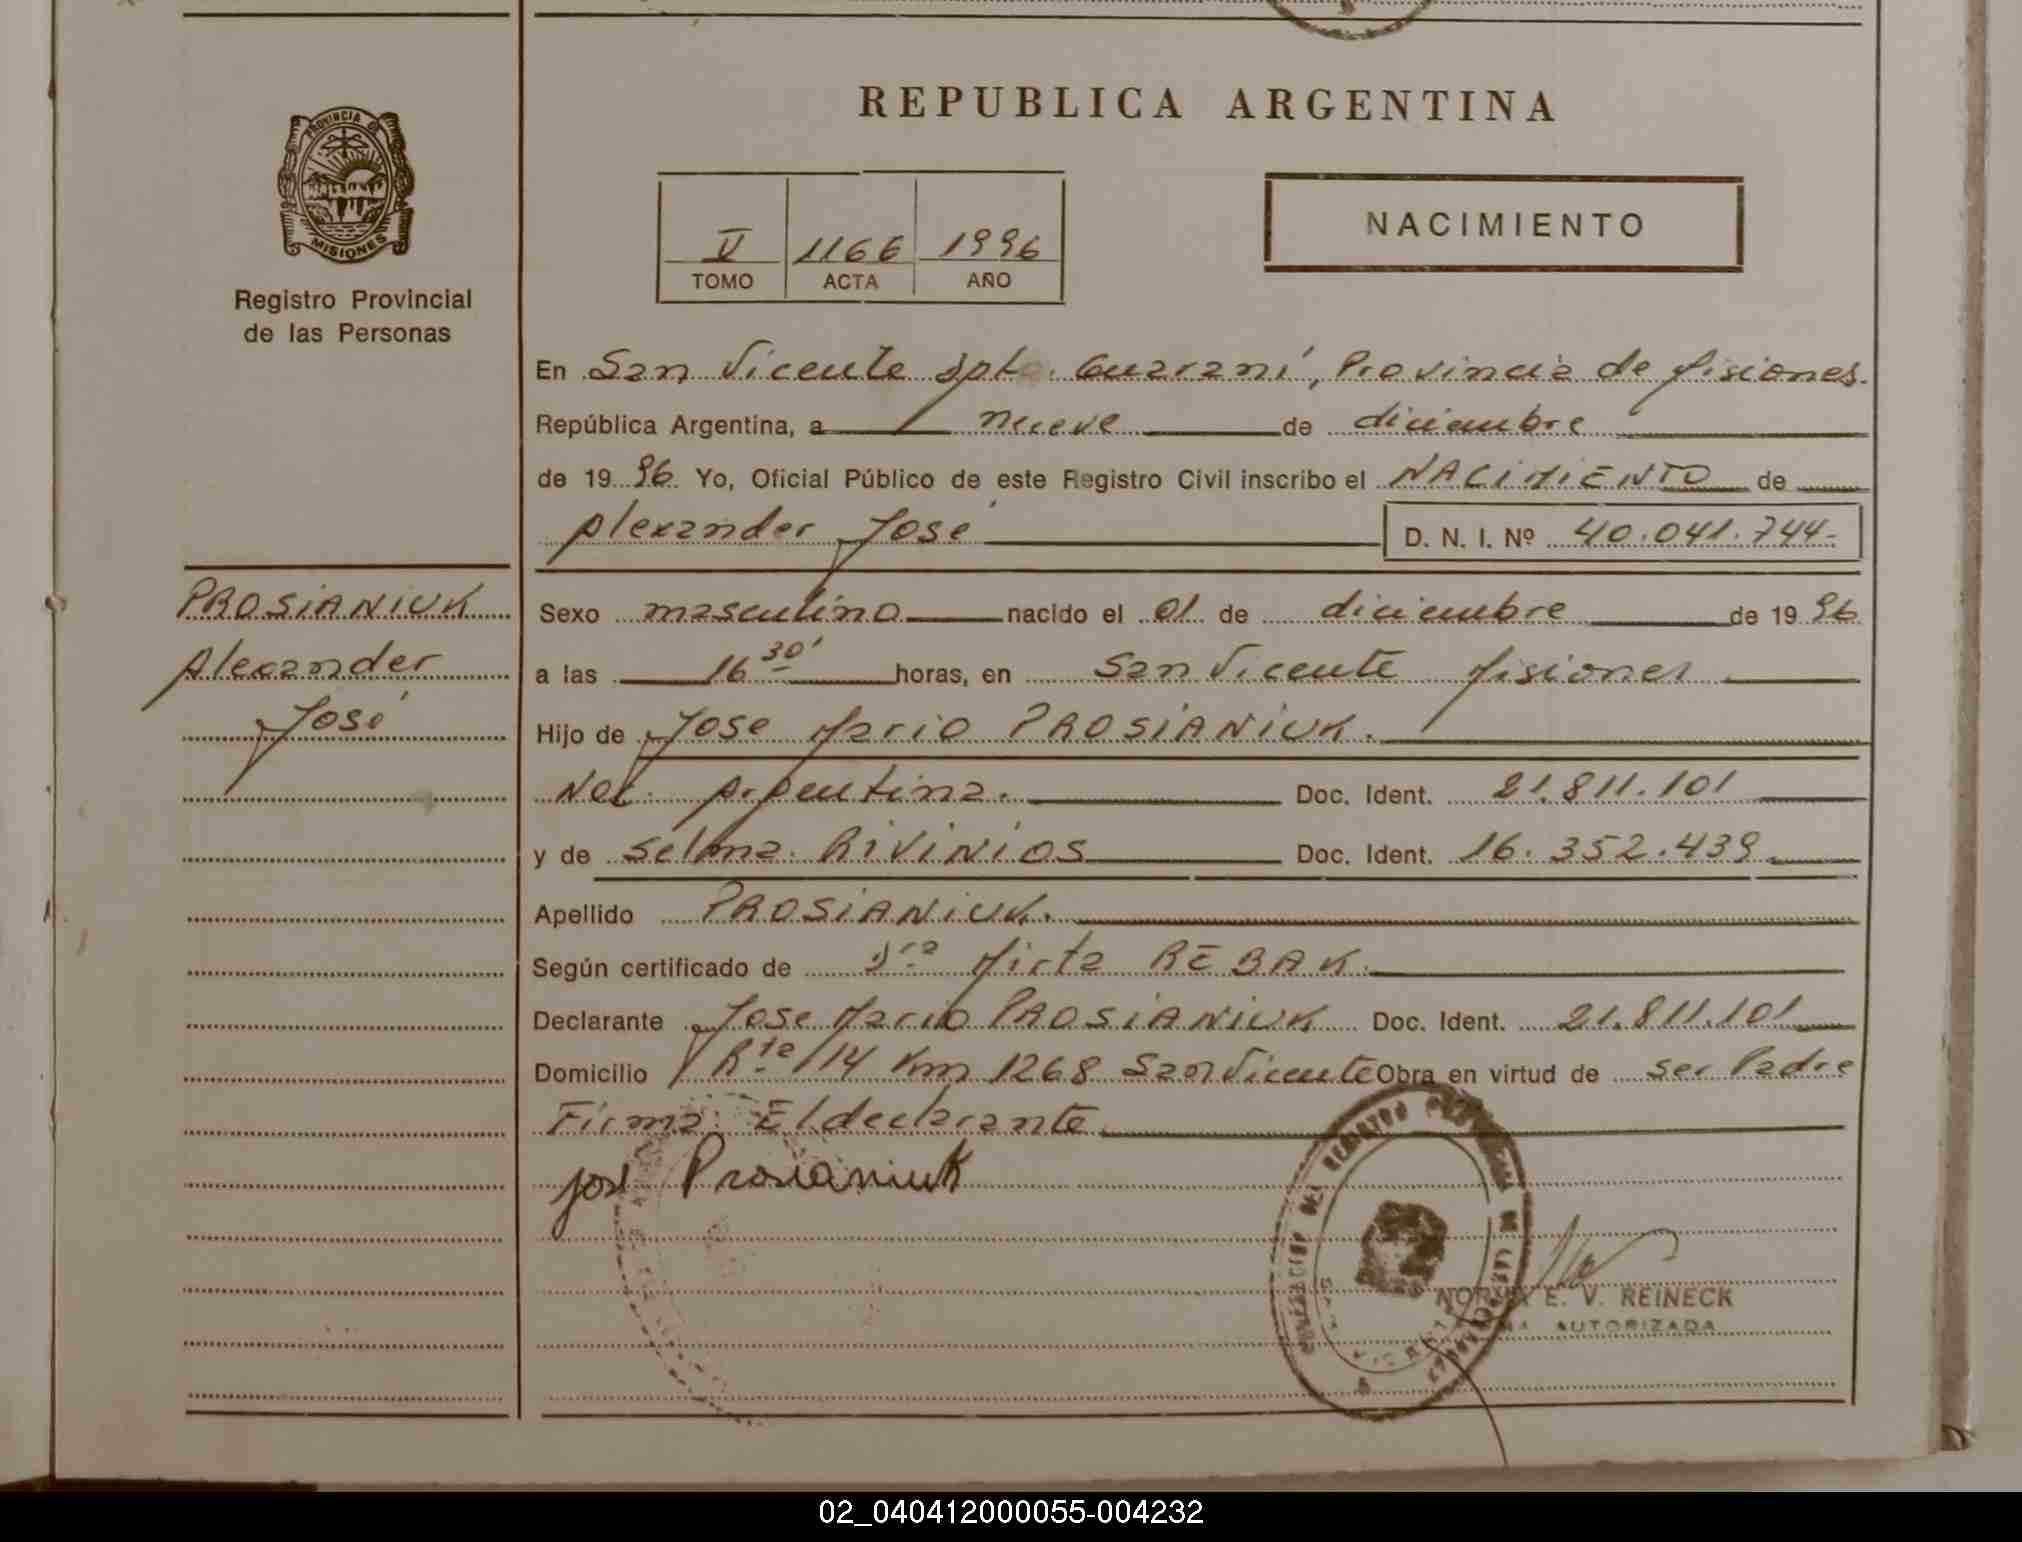 REPUBLICA ARGENTINA
PROVINCIA DE
MISIONES
Registro Provincial
de las Personas
V 1166 1996
TOMO ACTA AÑO
NACIMIENTO
En San Vicente Dpto. Guaraní, Provincia de Misiones.
República Argentina, a nueve de diciembre
de 1996. Yo, Oficial Público de este Registro Civil inscribo el NACIMIENTO de
Alexander José D. N. I. Nº 40.041.744-
PROSIANIUK
Alexander
José
Sexo masculino nacido el 01 de diciembre de 1996
a las 16 30' horas, en San Vicente Misiones
Hijo de Jose Mario PROSIANIUK.
Nac. Argentina. Doc. Ident. 21.811.101
y de Selma RIVINIOS Doc. Ident. 16.352.439
Apellido PROSIANIUK.
Según certificado de Dra Mirta REBAK.
Declarante Jose Mario PROSIANIUK Doc. Ident. 21.811.101
Domicilio Rta 14 Km 1268 San Vicente Obra en virtud de ser Padre
Firma: El declarante
José Prosianiuk
NORMA E. V. REINECK
AUTORIZADA
02_040412000055-004232